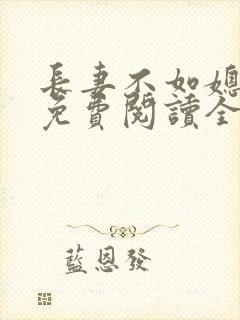 長妻不如媳
免費閱讀全
藍恩發